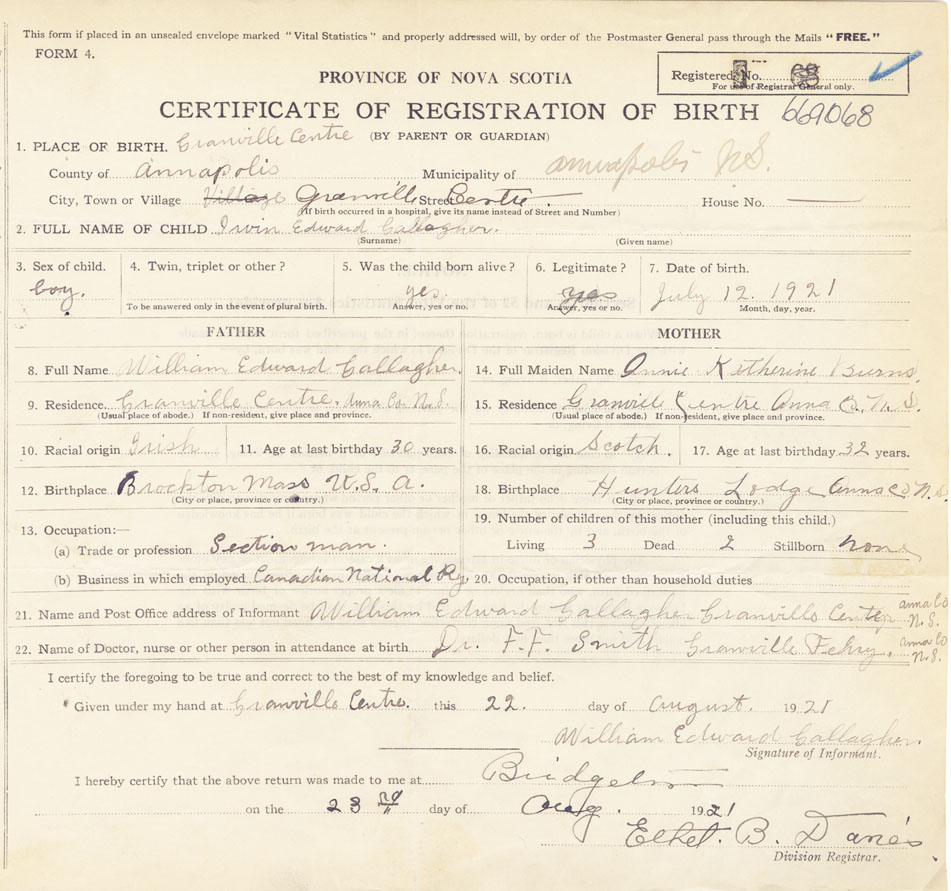 This form if placed in an unsealed envelope marked "Vital Statistics" and properly addressed will, by order of the Postmaster General pass through the Mails "FREE."
FORM 4.
PROVINCE OF NOVA SCOTIA
Registered No. 68
For use of Registrar General only.
CERTIFICATE OF REGISTRATION OF BIRTH 669068
(BY PARENT OR GUARDIAN)
1. PLACE OF BIRTH. Granville Centre
County of Annapolis Municipality of Annapolis N S.
City, Town or Village Village Granville Street Centre. House No.
(If birth occurred in a hospital, give its name instead of Street and Number)
2. FULL NAME OF CHILD Irvin Edward Gallagher.
(Surname) (Given name)
3. Sex of child. 4. Twin, triplet or other? 5. Was the child born alive? 6. Legitimate? 7. Date of birth.
boy. yes yes July 12. 1921
To be answered only in the event of plural birth. Answer, yes or no. Answer, yes or no. Month, day, year.
FATHER MOTHER
8. Full Name William Edward Gallagher. 14. Full Maiden Name Annie Ketherine Burns.
9. Residence. Granville Centre. Anna Co. N.S. 15. Residence Granville Centre Anna Co. N.S.
(Usual place of abode.) If non-resident, give place and province. (Usual place of abode.) If non-resident, give place and province.
10. Racial origin Irish 11. Age at last birthday 30 years. 16. Racial origin Scotch. 17. Age at last birthday 32 years.
12. Birthplace Brockton Mass U.S.A. 18. Birthplace Hunters Lodge Anna Co N.S.
(City or place, province or country.) (City or place, province or country.)
13. Occupation:— 19. Number of children of this mother (including this child.)
(a) Trade or profession Section man. Living 3 Dead 2 Stillborn none
(b) Business in which employed Canadian National Ry. 20. Occupation, if other than household duties
21. Name and Post Office address of Informant William Edward Gallagher Granville Centre Anna Co N.S.
22. Name of Doctor, nurse or other person in attendance at birth Dr. F.F. Smith Granville Ferry. Anna Co N.S.
I certify the foregoing to be true and correct to the best of my knowledge and belief.
Given under my hand at Granville Centre. this 22. day of August. 1921
William Edward Gallagher.
Signature of Informant.
I hereby certify that the above return was made to me at Bridgetown
on the 23 day of Aug. 1921
B.
Division Registrar.